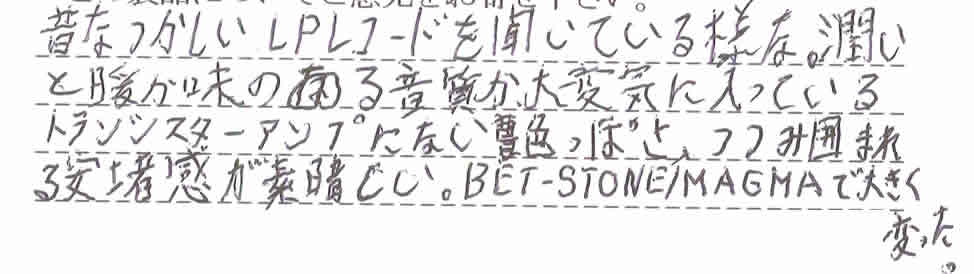 昔なつかしいLPレコードを聞いている様な。潤い
と暖か味の有る音質が大変気に入っている
トランジスターアンプにない艶色っぽさ、つつみ囲まれ
る安堵感が素晴しい。BET-STONE/MAGMAで大きく
変った。